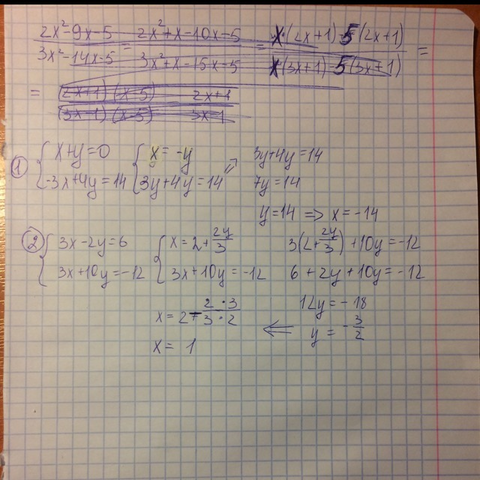 2x²-9x-5 / 3x²-14x-5 = 2x²+x-10x-5 / 3x²+x-15x-5 = x·(2x+1)-5(2x+1) / x(3x+1)-5(3x+1) =
= (2x+1)(x-5) 2x+1 / (3x-1)(x-5) 3x-1
① { x+y=0 { x=-y 3y+4y=14
-3x+4y=14 3y+4y=14 ⇗ 7y=14
y=14 => x=-14
② { 3x-2y=6 { x=2+2y/3 3(2+2y/3)+10y=-12
3x+10y=-12 3x+10y=-12 6+2y+10y=-12
x=2-2·3/3·2 12y=-18
x= 1 ⇐ y=-3/2